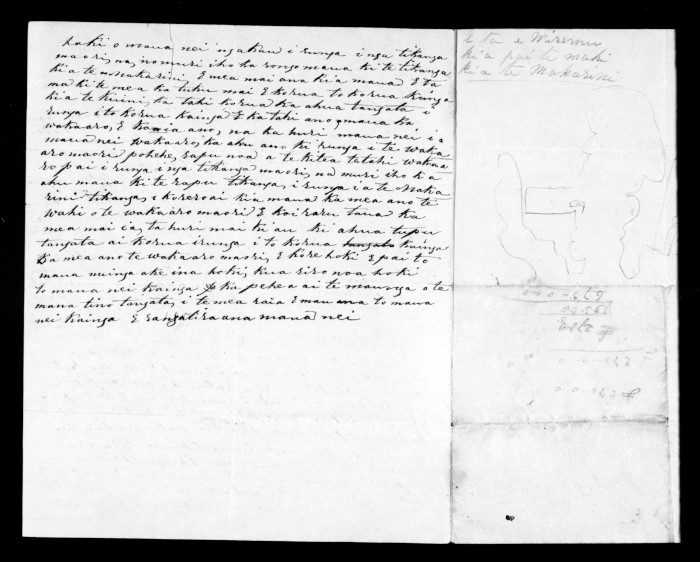 hoki o maua nei ngakau i runga i nga tikanga
maori, na, no muri iho ka rongo maua ki te tikanga
ki a te Makarini, E mea mai ana kia maua E ta
ma ki te mea ka tuku mai E korua to korua kainga
ki a te Kuini, ka tahi korua ka ahua tangata i
runga i to korua kainga E ka tahi ano maua ka
wakaaro, E ano, na ka huri maua nei i a
maua nei wakaaro, ka ahu ano ki runga i te waka
aro maori pohehe, rapu noa a te kitea tetahi wakaa
ro pai i runga i nga tikanga maori, na muri iho ka
ahu maua ki te rapu tikanga, i runga i a te Maka
rini tikanga, i korero ai kia maua ka mea ano te
wahi o te wakaaro maori E kai raru taua ka
mea mai ia, ta huri mai ki au ki ahua tupu
tangata ai korua i runga i to korua tangata kainga
Ka mea ano te wakaaro maori, E kore hoki E pai to
maua nuinga ake ina hoki, kua riro noa hoki
to maua nei kainga ka pehea ai te maunga o te
mana tino tangata, i te mea raia E mau ana to maua
nei kainga E rangatira ana maua nei
E ta e Wiremu
kia pai te mahi
ki a te Makarini